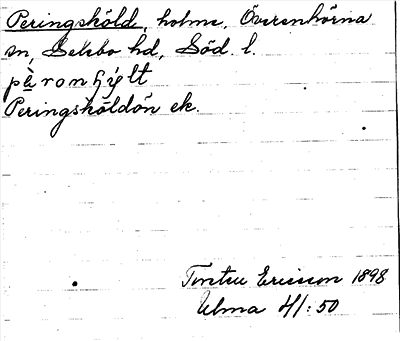 Peringsköld, holme, Överenhörna
sn, Selebo hd, Söd. l.
Peringsköldön ek.
Ericsson 1898
Ulma 4/1:50